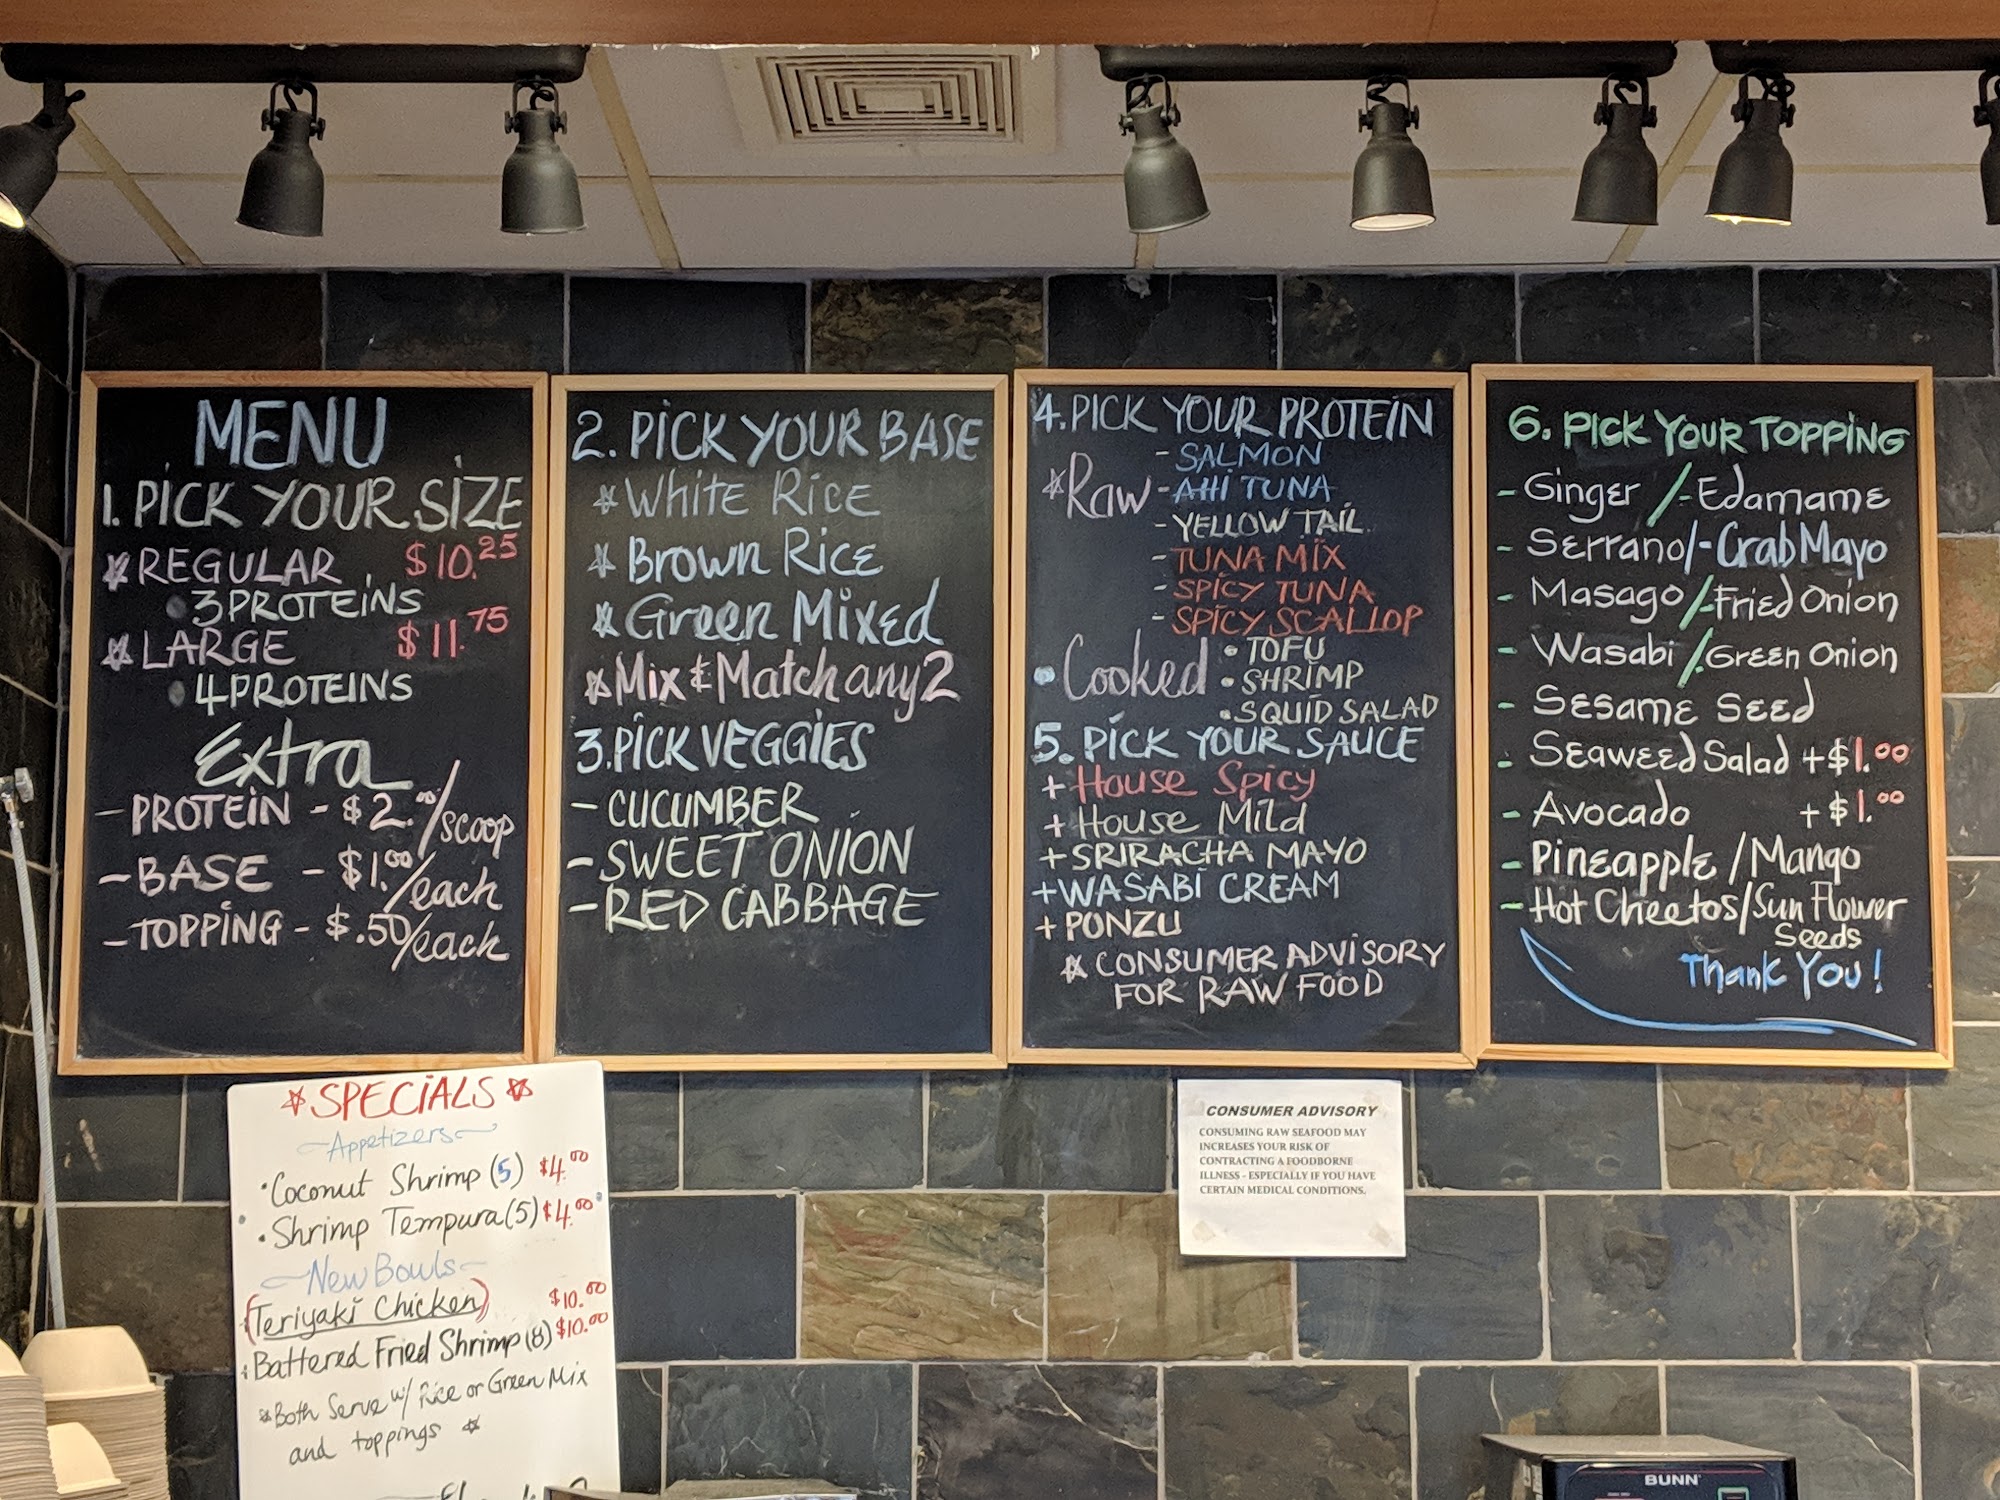 MENU
1. PICK YOUR SIZE
REGULAR $10.25
3 PROTEINS
LARGE $11.75
4 PROTEINS
Extra
- PROTEIN - $2.00/scoop
- BASE - $1.00/each
- TOPPING - $.50/each
2. PICK YOUR BASE
White Rice
Brown Rice
Green Mixed
Mix & Match any 2
3. PICK VEGGIES
- CUCUMBER
- SWEET ONION
- RED CABBAGE
4. PICK YOUR PROTEIN
Raw
- SALMON
- AHI TUNA
- YELLOW TAIL
- TUNA MIX
- SPICY TUNA
- SPICY SCALLOP
Cooked
• TOFU
• SHRIMP
• SQUID SALAD
5. PICK YOUR SAUCE
+ House Spicy
+ House Mild
+ SRIRACHA MAYO
+ WASABI CREAM
+ PONZU
CONSUMER ADVISORY
FOR RAW FOOD
6. PICK YOUR TOPPING
- Ginger / - Edamame
- Serrano / - Crab Mayo
- Masago / - Fried Onion
- Wasabi / - Green Onion
- Sesame Seed
- Seaweed Salad + $1.00
- Avocado + $1.00
- Pineapple / Mango
- Hot Cheetos / Sun Flower
Seeds
Thank You!
SPECIALS
Appetizers
• Coconut Shrimp (5) $4.00
• Shrimp Tempura (5) $4.00
New Bowls
(Teriyaki Chicken) $10.00
• Battered Fried Shrimp (8) $10.00
Both Serve w/ Rice or Green Mix
and toppings
CONSUMER ADVISORY
CONSUMING RAW SEAFOOD MAY
INCREASES YOUR RISK OF
CONTRACTING A FOODBORNE
ILLNESS - ESPECIALLY IF YOU HAVE
CERTAIN MEDICAL CONDITIONS.
BUNN